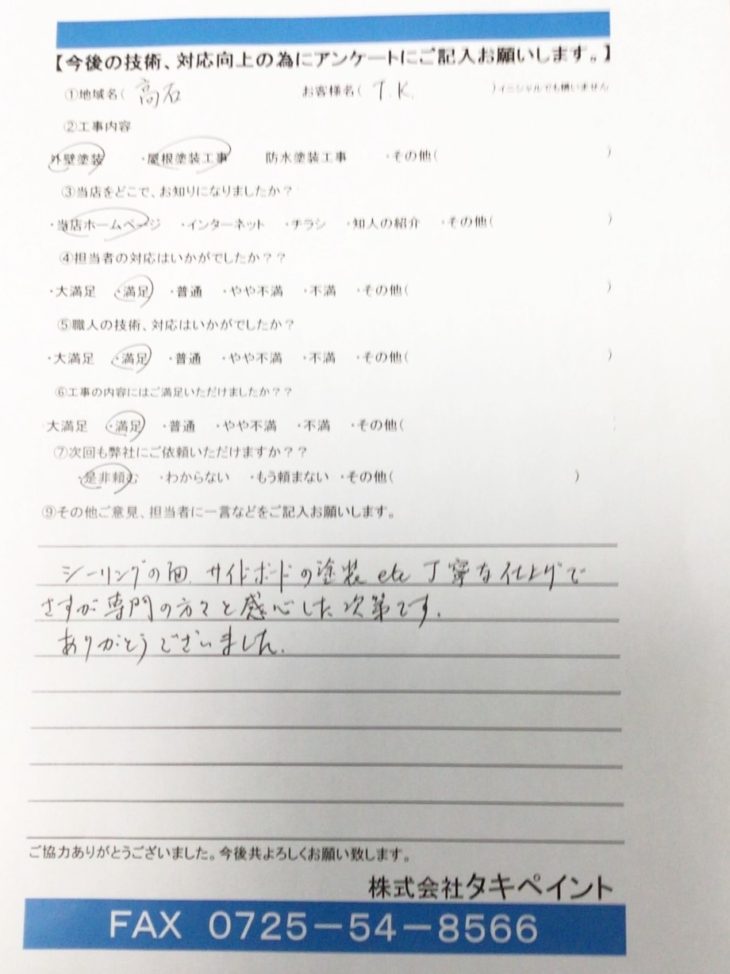 【今後の技術、対応向上の為にアンケートにご記入お願いします。】
①地域名( 高石 お客様名( T.K. )イニシャルでも構いません
②工事内容
外壁塗装 ・屋根塗装工事 防水塗装工事 ・その他( )
③当店をどこで、お知りになりましたか?
・当店ホームページ ・インターネット ・チラシ ・知人の紹介 ・その他( )
④担当者の対応はいかがでしたか??
・大満足 ・満足 ・普通 ・やや不満 ・不満 ・その他( )
⑤職人の技術、対応はいかがでしたか?
・大満足 ・満足 ・普通 ・やや不満 ・不満 ・その他( )
⑥工事の内容にはご満足いただけましたか??
大満足 ・満足 ・普通 ・やや不満 ・不満 ・その他(
⑦次回も弊社にご依頼いただけますか??
・是非頼む ・わからない ・もう頼まない ・その他( )
⑨その他ご意見、担当者に一言などをご記入お願いします。
シーリングの面、サイドボードの塗装etc丁寧な仕上げで
さすが専門の方々と感心した次第です。
ありがとうございました。
ご協力ありがとうございました。今後共よろしくお願い致します。
株式会社タキペイント
FAX 0725-54-8566